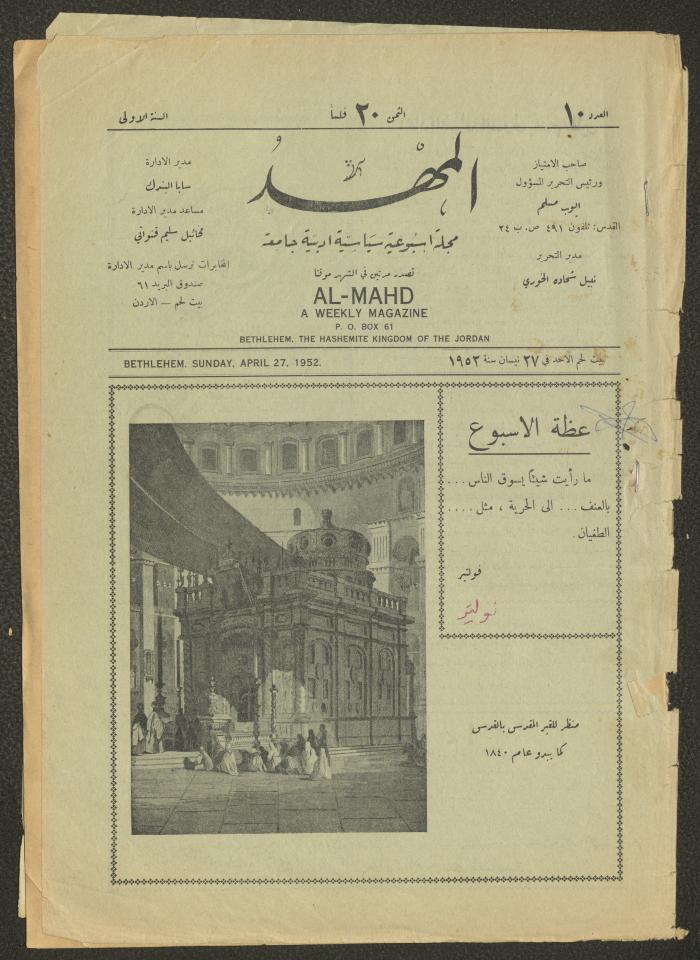 العدد ١٠
الثمن ٢٠ فلساً
السنة الاولى
صاحب الامتياز
ورئيس التحرير المسؤول
ايوب مسلم
القدس: تلفون ٤٩١ ص. ب ٢٤
مدير التحرير
نبيل شحاده الخوري
المهد
مجلة اسبوعية سياسية ادبية جامعة
تصدر مرتين في الشهر موقتا
AL-MAHD
A WEEKLY MAGAZINE
P. O. BOX 61
BETHLEHEM, THE HASHEMITE KINGDOM OF THE JORDAN
مدير الادارة
سابا البندك
مساعد مدير الادارة
مخائيل سليم قنواتي
المخابرات ترسل باسم مدير الادارة
صندوق البريد ٦١
بيت لحم — الاردن
بيت لحم الاحد في ٢٧ نيسان سنة ١٩٥٢
BETHLEHEM, SUNDAY, APRIL 27, 1952.
عظة الاسبوع
ما رأيت شيئا يسوق الناس ...
بالعنف ... الى الحرية ، مثل ....
الطغيان.
فولتير
منظر للقبر المقدس بالقدس
كما يبدو عام ١٨٤٠